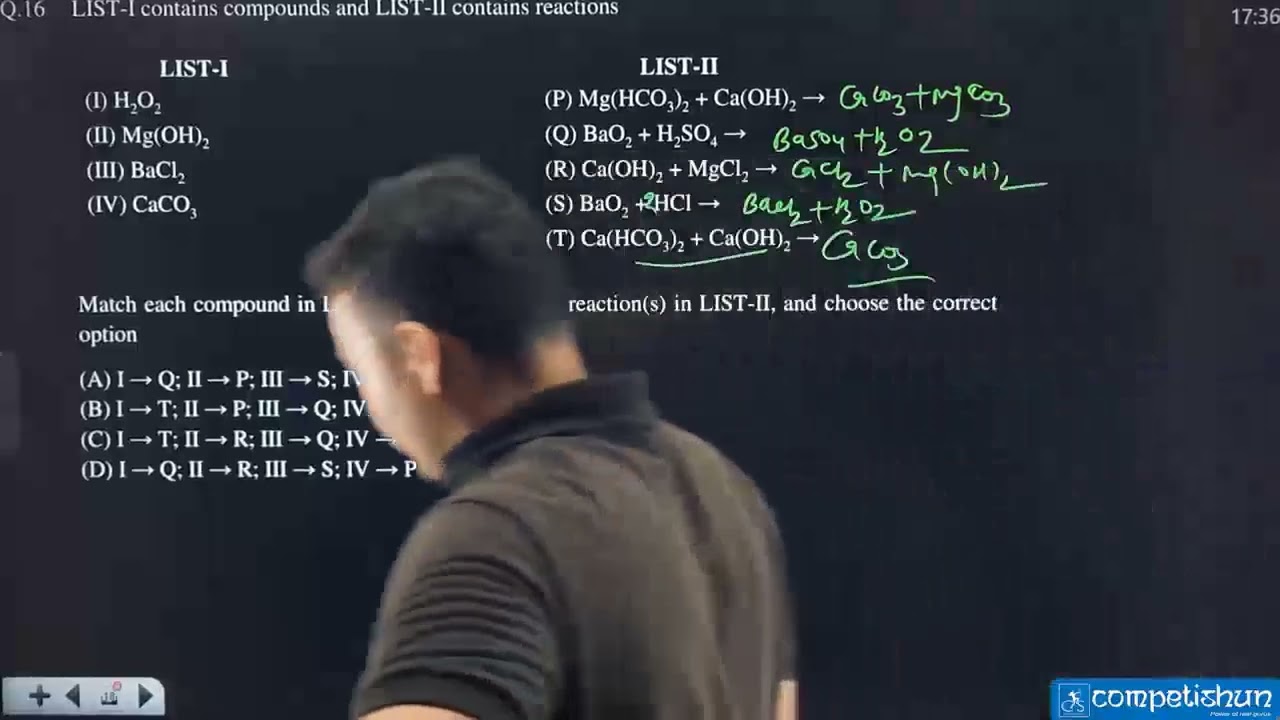 Q.16 LIST-I contains compounds and LIST-II contains reactions
17:36
LIST-I
LIST-II
(I) H₂O₂
(II) Mg(OH)₂
(III) BaCl₂
(IV) CaCO₃
(P) Mg(HCO₃)₂ + Ca(OH)₂ → CaCO₃ + MgCO₃
(Q) BaO₂ + H₂SO₄ → BaSO₄ + H₂O₂
(R) Ca(OH)₂ + MgCl₂ → CaCl₂ + Mg(OH)₂
(S) BaO₂ + 2HCl → BaCl₂ + H₂O₂
(T) Ca(HCO₃)₂ + Ca(OH)₂ → CaCO₃
Match each compound in reaction(s) in LIST-II, and choose the correct
option
(A) I → Q; II → P; III → S; IV
(B) I → T; II → P; III → Q; IV
(C) I → T; II → R; III → Q; IV →
(D) I → Q; II → R; III → S; IV → P
competishun